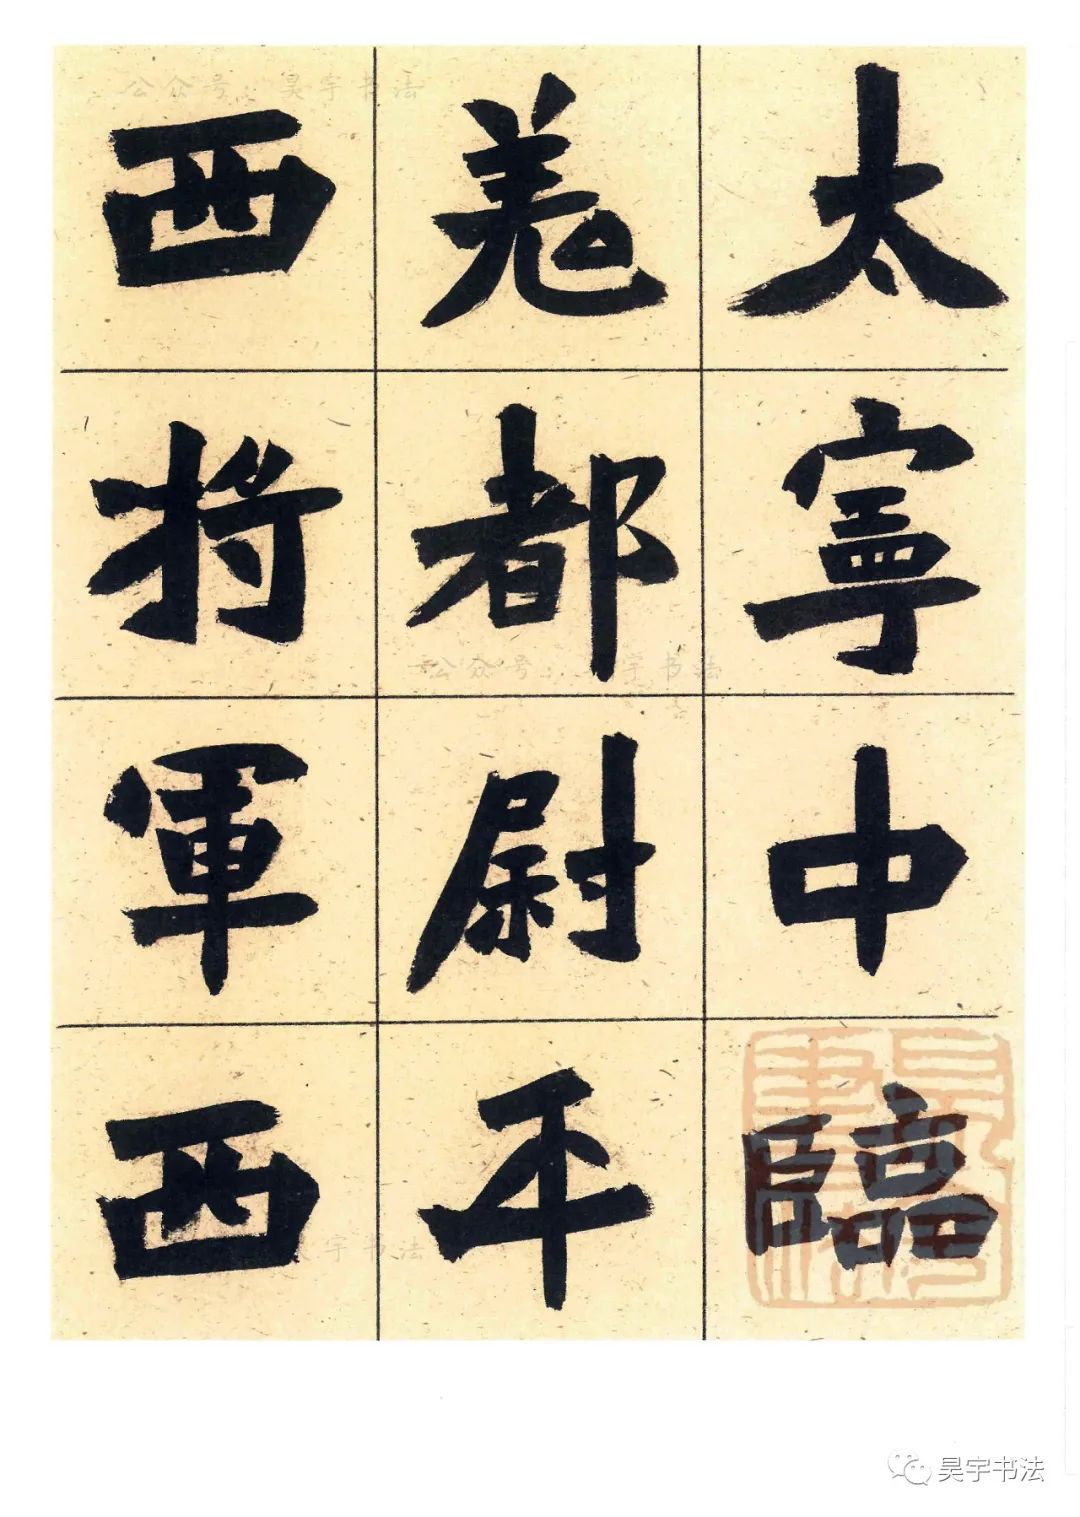 太寧中臨
羌都尉平
西将軍西
公众号：昊宇书法
公众号：昊宇书法
宇书法
昊宇书法